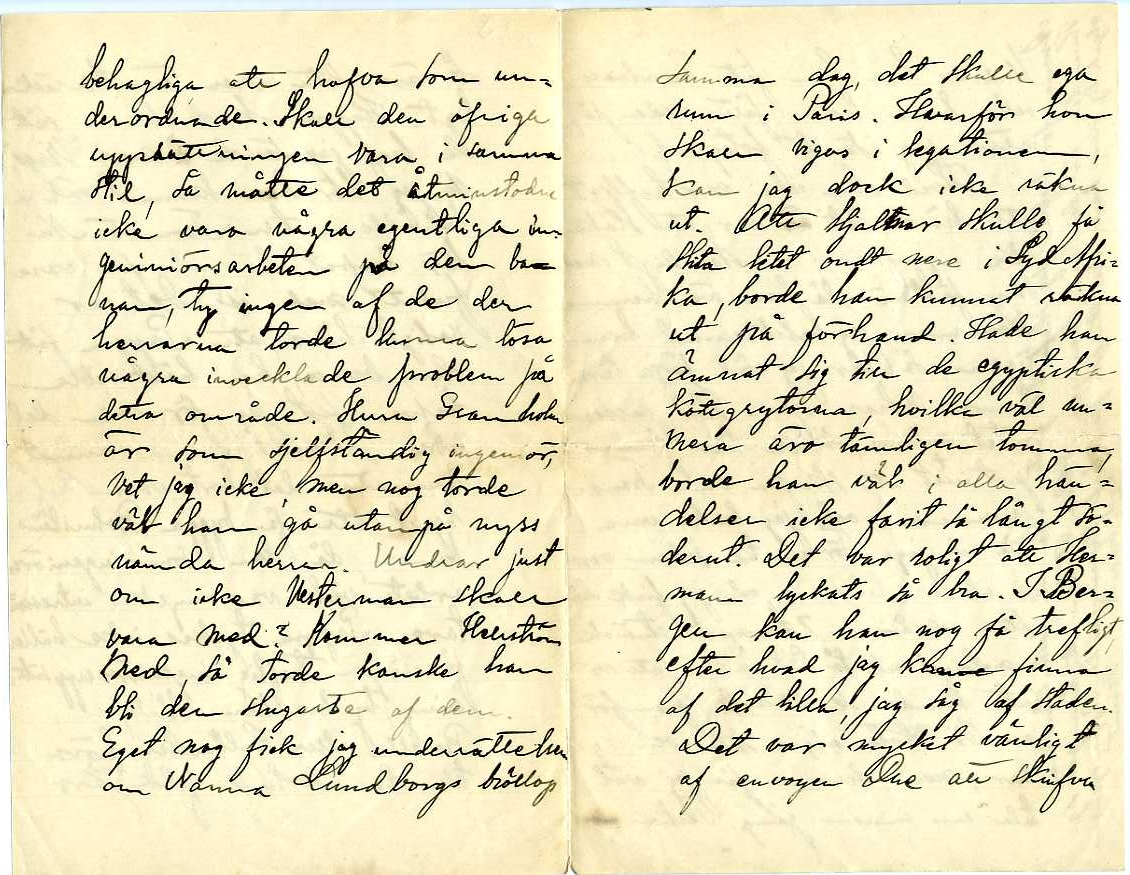 behagliga att hafva som un=
derordnade. Skall den öfriga
uppsättningen vara i samma
stil, så måtte det åtminstone
icke vara några egentliga in-
geniörsarbeten på den ba=
nan, ty ingen af de der
herrarna torde kunna lösa
några invecklade problem på
detta område. Huru Granholm
är som sjelfständig ingeniör,
vet jag icke, men nog torde
väl han gå utanpå nyss
nämda herrar. Undrar just
om icke Vesterman skall
vara med? Kommer Hellström
med, så torde kanske han
bli den slugaste af dem.
Eget nog fick jag underrättelsen
om Nanna Lundborgs bröllop
samma dag, det skulle ega
rum i Paris. Hvarför hon
skall vigas i legationen,
kan jag dock icke räkna
ut. Att Hjalmar skulle få
slita litet ondt nere i Syd Afri=
ka, borde han kunnat räkna
ut på förhand. Hade han
ämnat sig till de egyptiska
köttgrytorna, hvilka väl nu=
mera äro tämligen tomma,
borde han väl i alla hän=
delser icke farit så långt sö=
derut. Det var roligt att Her=
man lyckats så bra. I Ber=
gen kan han nog få trefligt,
efter hvad jag kunde finna
af det lilla, jag såg af staden.
Det var mycket vänligt
af envoyen Due att skrifva